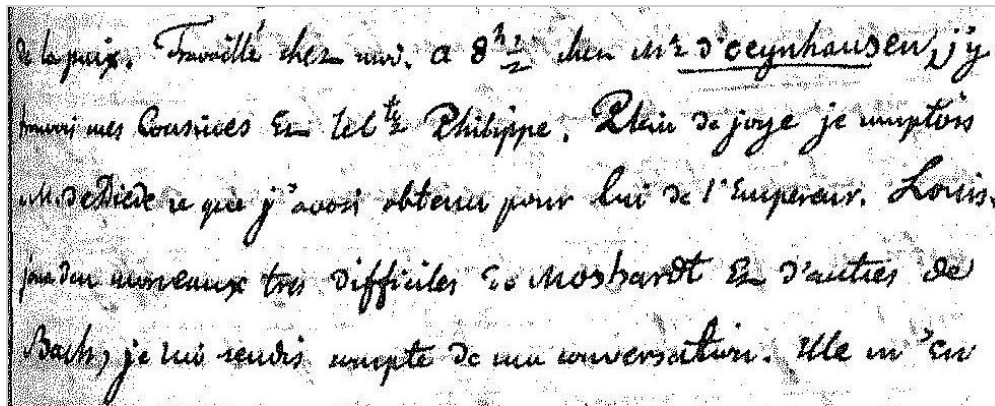 de la paix. Travaillé chez moi. a 8h ½ chez Mr d'Oeynhausen, j'y
trouvai mes Cousines Et le Cte Philippe. Plein de joye je comptois
M. de Diede ce que j'avois obtenu pour lui de l'Empereur. Louise
joua des morceaux tres difficiles de Moshardt Et d'autres de
Bach, je lui rendis compte de ma conversation. Elle m'en